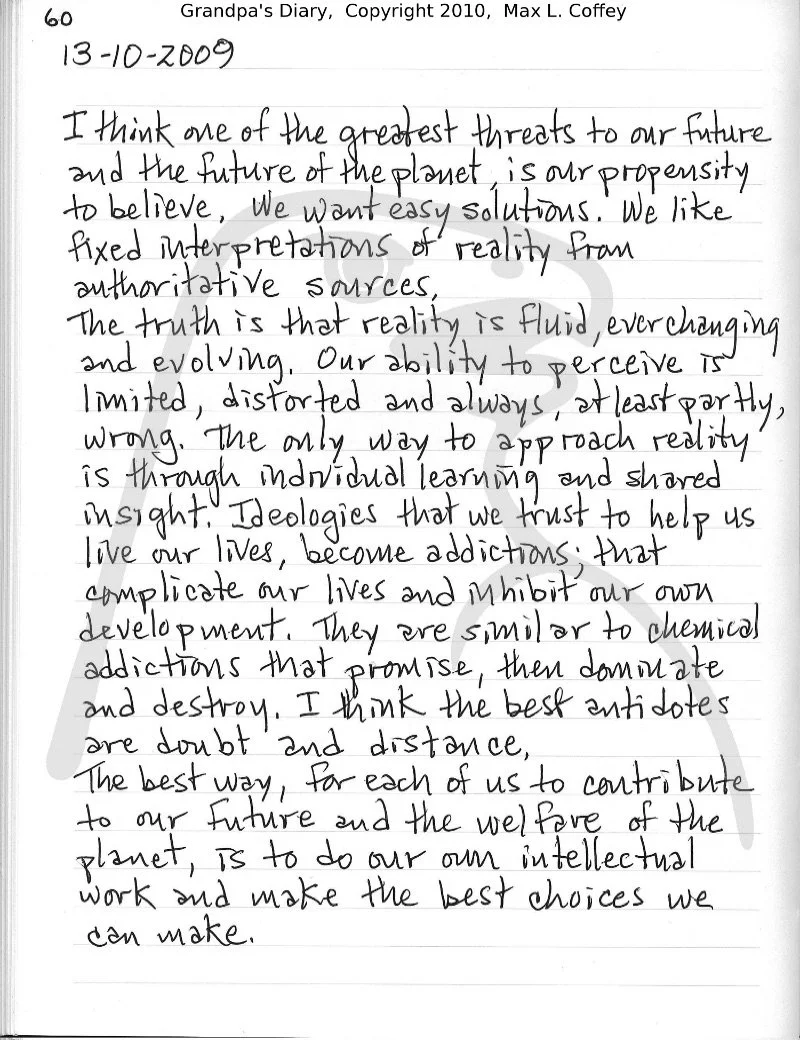 60
Grandpa's Diary, Copyright 2010, Max L. Coffey
13-10-2009
I think one of the greatest threats to our future
and the future of the planet, is our propensity
to believe, We want easy solutions. We like
fixed interpretations of reality from
authoritative sources,
The truth is that reality is fluid, ever changing
and evolving. Our ability to perceive is
limited, distorted and always, at least partly,
wrong. The only way to approach reality
is through individual learning and shared
insight. Ideologies that we trust to help us
live our lives, become addictions; that
complicate our lives and inhibit our own
development. They are similar to chemical
addictions that promise, then dominate
and destroy. I think the best antidotes
are doubt and distance,
The best way, for each of us to contribute
to our future and the welfare of the
planet, is to do our own intellectual
work and make the best choices we
can make.